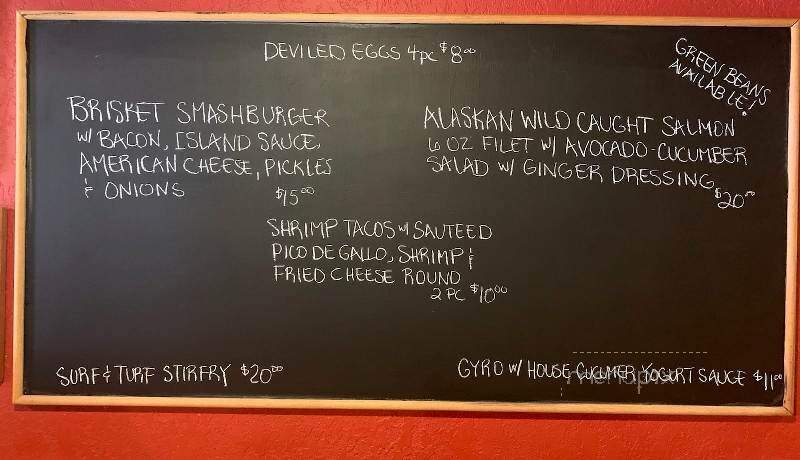 DEVILED EGGS 4pc $8.00
GREEN BEANS
AVAILABLE!
BRISKET SMASHBURGER
W/ BACON, ISLAND SAUCE,
AMERICAN CHEESE, PICKLES
& ONIONS $15.00
ALASKAN WILD CAUGHT SALMON
6 OZ FILET W/ AVOCADO-CUCUMBER
SALAD W/ GINGER DRESSING
$20.00
SHRIMP TACOS W/ SAUTEED
PICO DE GALLO, SHRIMP &
FRIED CHEESE ROUND
2 PC $10.00
SURF & TURF STIRFRY $20.00
GYRO W/ HOUSE CUCUMER YOGURT SAUCE $11.00
menupix